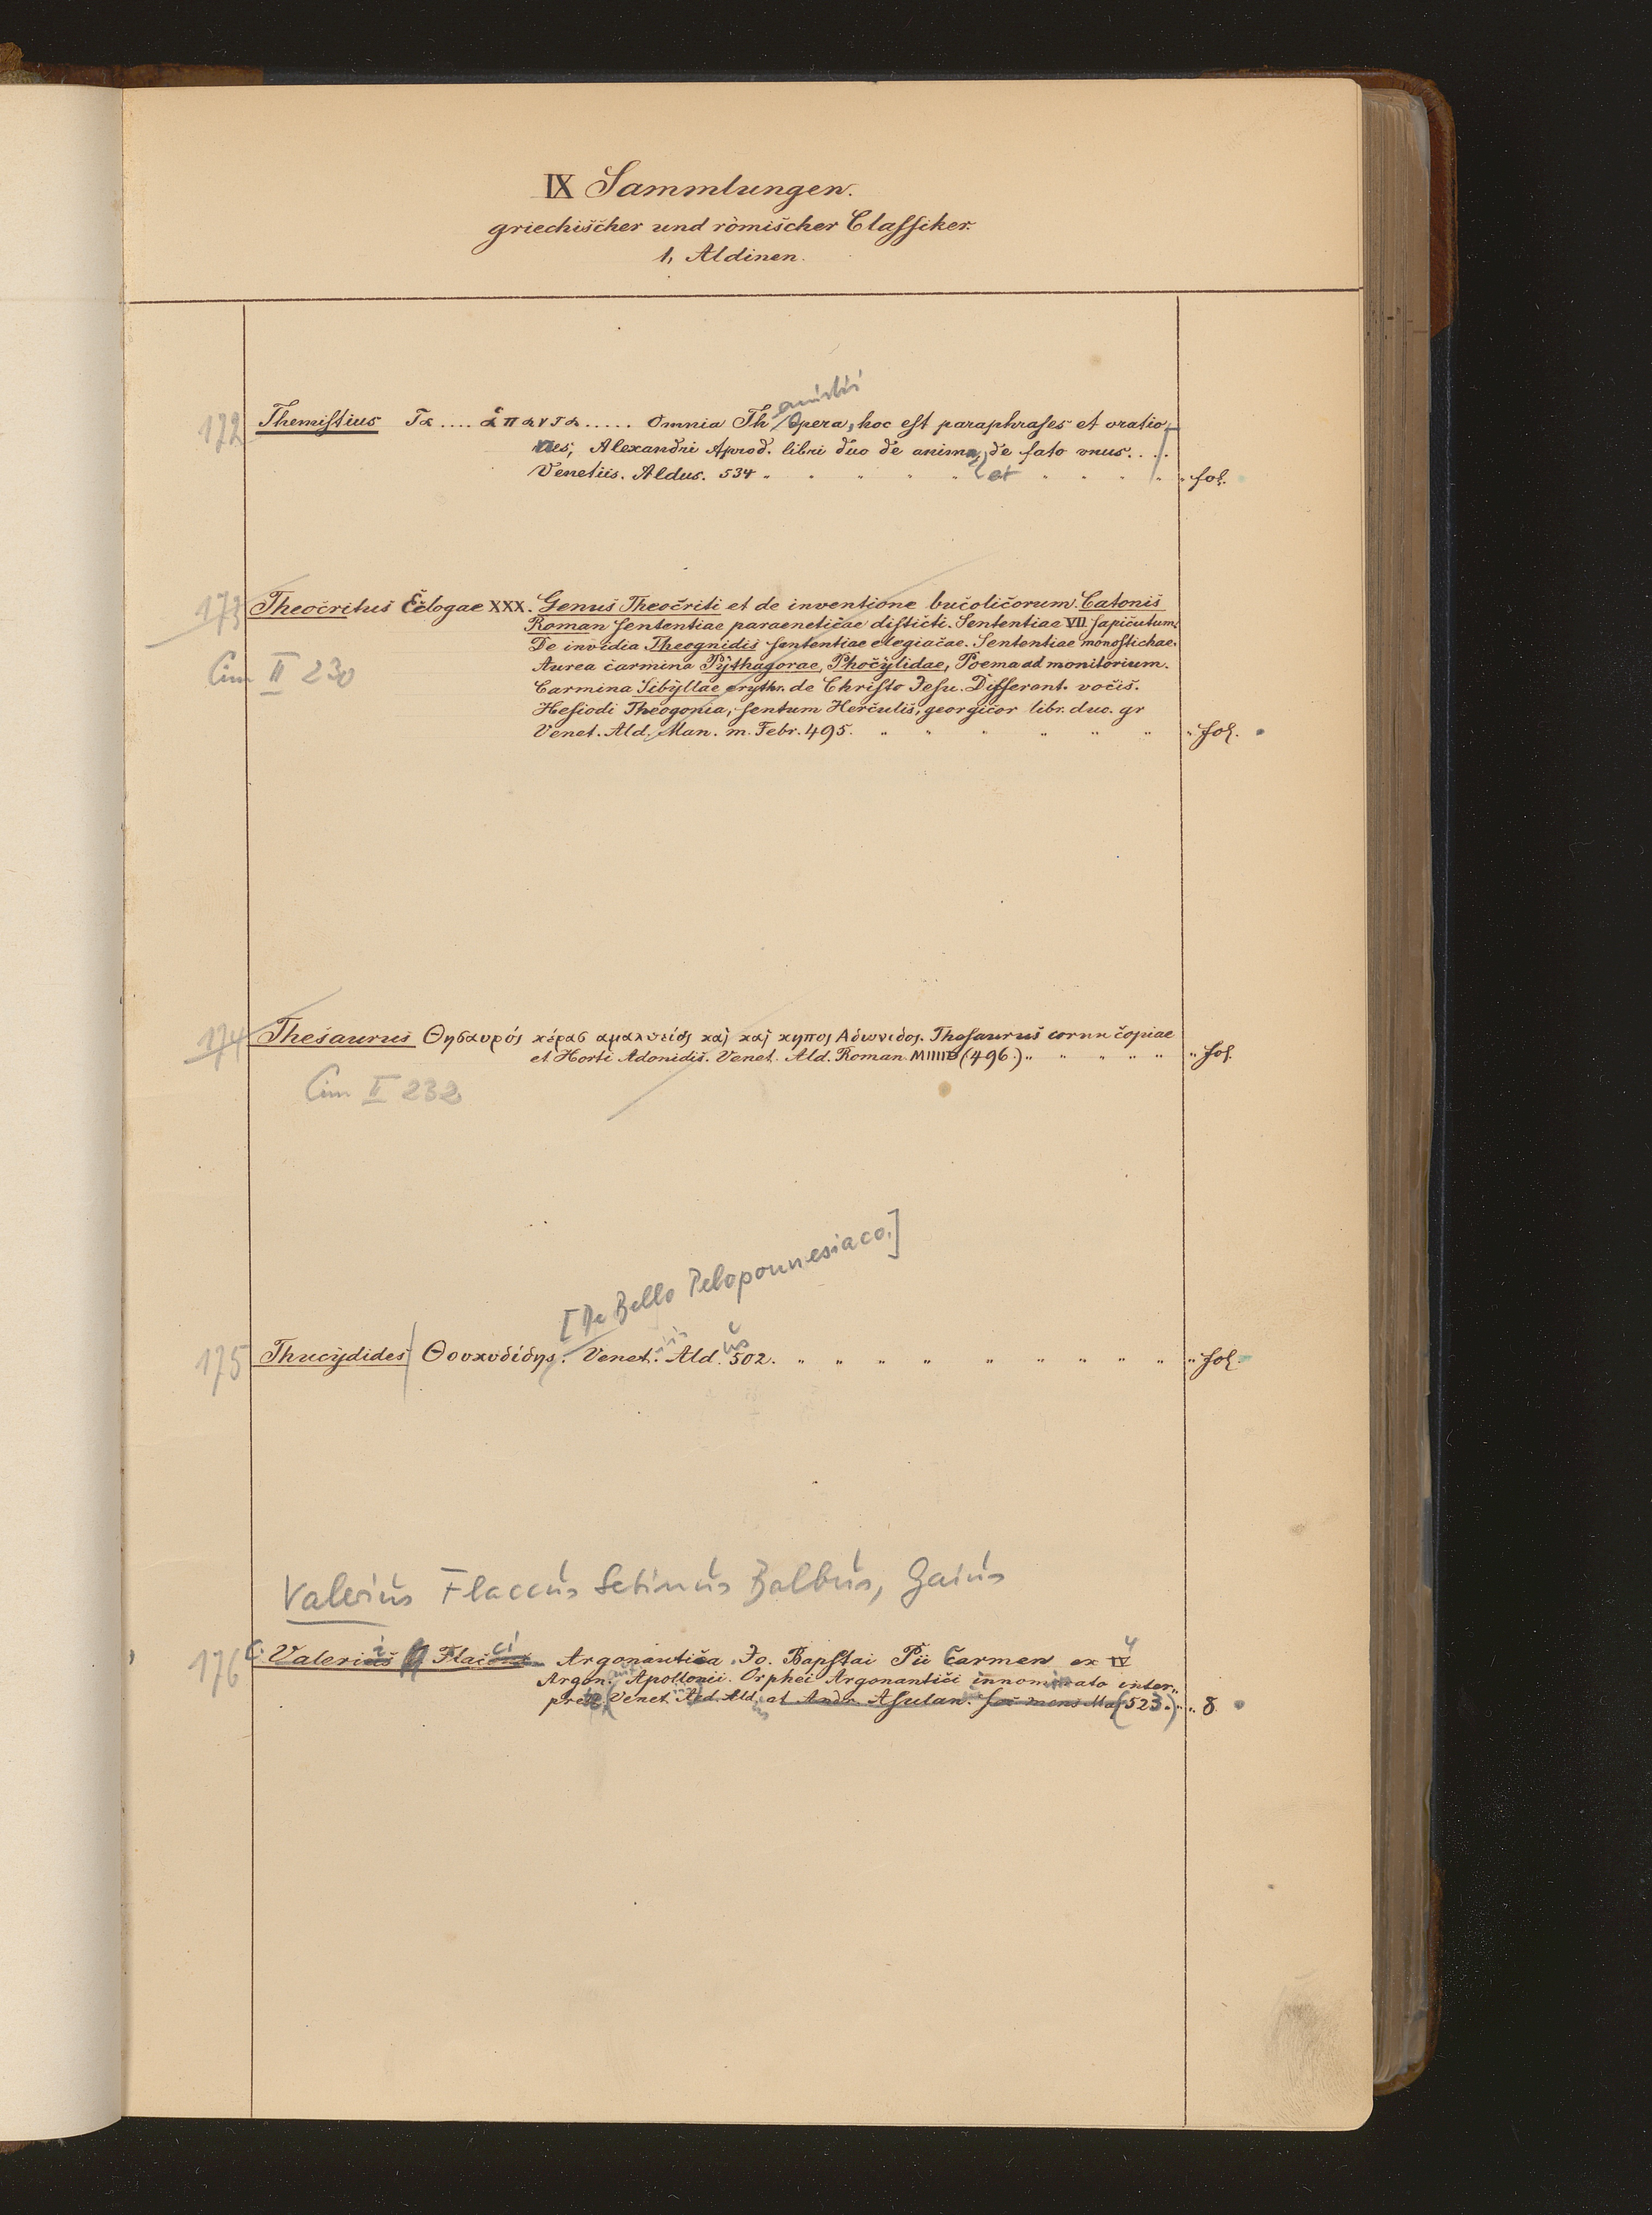 IX Sammlungen.
griechischer und römischer Classiker.
1, Aldinen.
emistii
172 Themistius Τα .... ἁπαντα ..... Omnia Th Opera, hoc est paraphrases et oratio
nes, Alexandri Aprod. libri duo de anima, de fato unus....
Venetiis. Aldus. 534 et fol.
173 Theocritus Eclogae XXX. Genus Theocriti et de inventione bucolicorum. Catonis
Roman sententiae paraeneticae disticti. Sententiae VII sapicutum.
De invidia Theognidis sententiae elegiacae. Sententiae monostichae.
Cim II 230 Aurea carmina Pythagorae, Phocylidae, Poema ad monitorium.
Carmina Sibyllae erythr. de Christo Jesu. Differant. vocis.
Hesiodi Theogonia, sentum Herculis, georgicor libr. duo. gr
Venet. Ald. Man. m. Febr. 495. fol.
174 Thesaurus Θησαυρός κέρας αμαλθείος καὶ καὶ κηπος Αδωνιδος. Thesaurus cornu copiae
et Horti Adonidis. Venet. Ald. Roman. MIIIID (496.) fol.
Cim II 232
[De Bello Peloponnesiaco.]
175 Thucydides Θουκυδίδης. Venet. Ald. us 502. fol.
Valerius Flaccus Setinus Balbus, Gaius
176 C. Valerius Flac ci Argonautica, Jo. Baptstai Pii Carmen ex IV 4
Argon. Apollonii. Orphei Argonantici innominato inter-
Venet. Ald. at Andr. Asulan. mens Ma (523.) 8